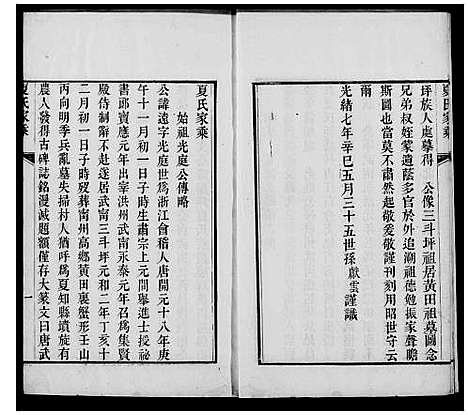 坪族人處摹得　公像三斗坪祖居黃田祖墓圖念
兄弟叔姪蒙遺蔭多官於外追溯祖德勉振家聲瞻
斯圖也當莫不肅然起敬爰敬謹刊刻用昭世守云
爾
光緒七年辛巳五月三十五世孫　獻雲謹識
夏氏家乘
始祖光庭公傳略
公諱遠字光庭世為浙江會稽人唐開元十八年庚
午十一月初一日子時生肅宗上元間舉進士授祕
書郎寶應元年出宰洪州武甯永泰元年召為集賢
殿侍制辭不赴遂居武甯三斗坪元和二年丁亥十
二月初一日子時歿葬甯州高鄉黃田裏蟹形壬山
丙向明季兵亂墓失掃村人猶呼為夏知縣墳族有
農人發得古碑誌銘漫滅題額僅存大篆文曰唐武
夏氏家乘
一